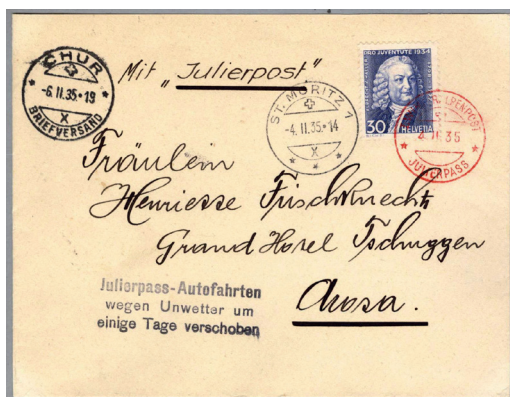 CHUR
-6.II.35-19
X
BRIEFVERSAND
Mit "Julierpost"
ST. MORITZ 1
-4.II.35-14
X
PRO JUVENTUTE 1934
30 HELVETIA
II.35
JULIERPASS
Fräulein
Henriesse Frischknecht
Grand Hotel Tschuggen
Arosa.
Julierpass-Autofahrten
wegen Unwetter um
einige Tage verschoben